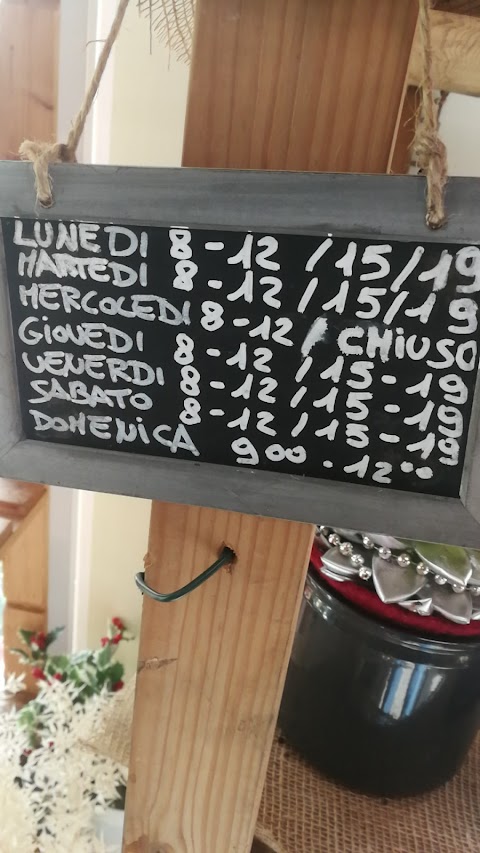 LUNEDI 8-12 /15/19
MARTEDI 8-12 /15/19
MERCOLEDI 8-12 / CHIUSO
GIOVEDI 8-12 /15-19
VENERDI 8-12 /15-19
SABATO 8-12 /15-19
DOMENICA 900 - 1200